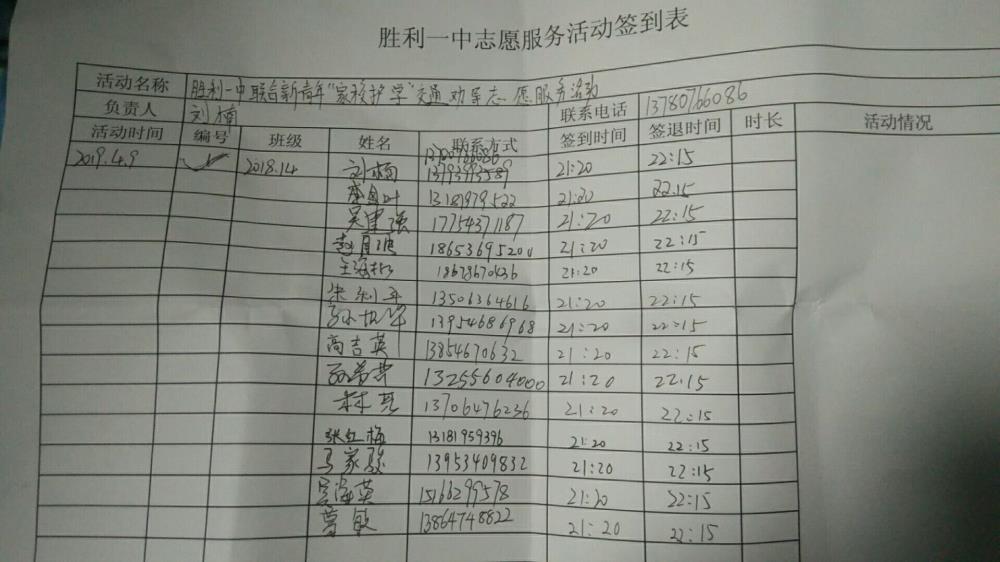 胜利一中志愿服务活动签到表
活动名称 胜利一中联合新青年"家校护学"交通劝导志愿服务活动
负责人 刘楠 联系电话 13780766086
活动时间 编号 班级 姓名 联系方式 签到时间 签退时间 时长 活动情况
2019.4.9 2018.14 刘楠 13793993589 21:20 22:15
13181979522 21:20 22:15
吴建强 17754371187 21:20 22:15
18653695200 21:20 22:15
21:20 22:15
朱利平 13506364616 21:20 22:15
13954686968 21:20 22:15
高吉英 13854670632 21:20 22:15
13255604000 21:20 22:15
林亮 13706476236 21:20 22:15
张红梅 13181959396 21:20 22:15
马家骏 13953409832 21:20 22:15
海英 15166299578 21:20 22:15
敏 13864748822 21:20 22:15